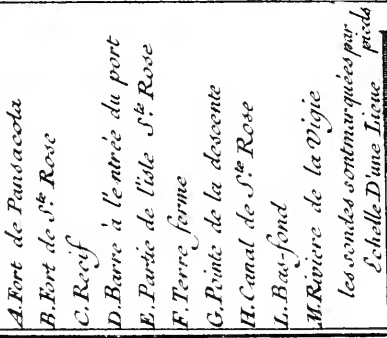 A. Fort de Pansacola
B. Fort de S.te Rose
C. Recif
D. Barre à l'entrée du port
E. Partie de l'isle S.te Rose
F. Terre ferme
G. Pointe de la descente
H. Canal de S.te Rose
L. Bas-fond
M. Riviere de la Vigie
les sondes sont marquées par pieds
Echelle D'une Lieue